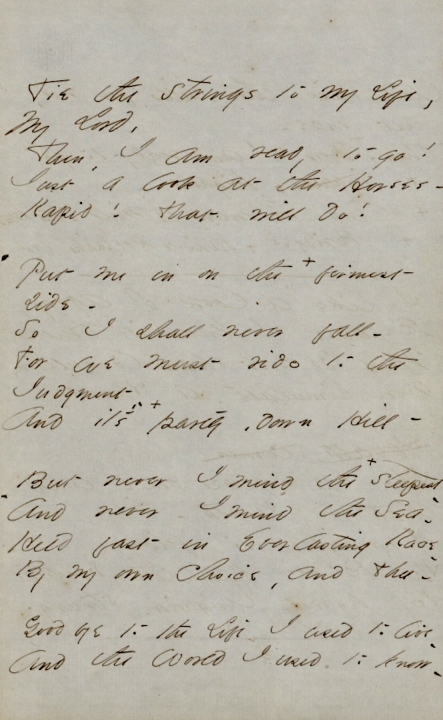 Tie the Strings to my Life,
My Lord,
Then, I am ready to go!
Just a look at the Horses -
Rapid! That will do!
Put me in on the + firmest
side -
So I shall never fall -
For we must ride to the
Judgment -
And it's + partly, down Hill -
But never I mind the + steepest
And never I mind the Sea -
Held fast in Everlasting Race -
By my own Choice, and Thee -
Good bye to the Life I used to live -
And the World I used to know -